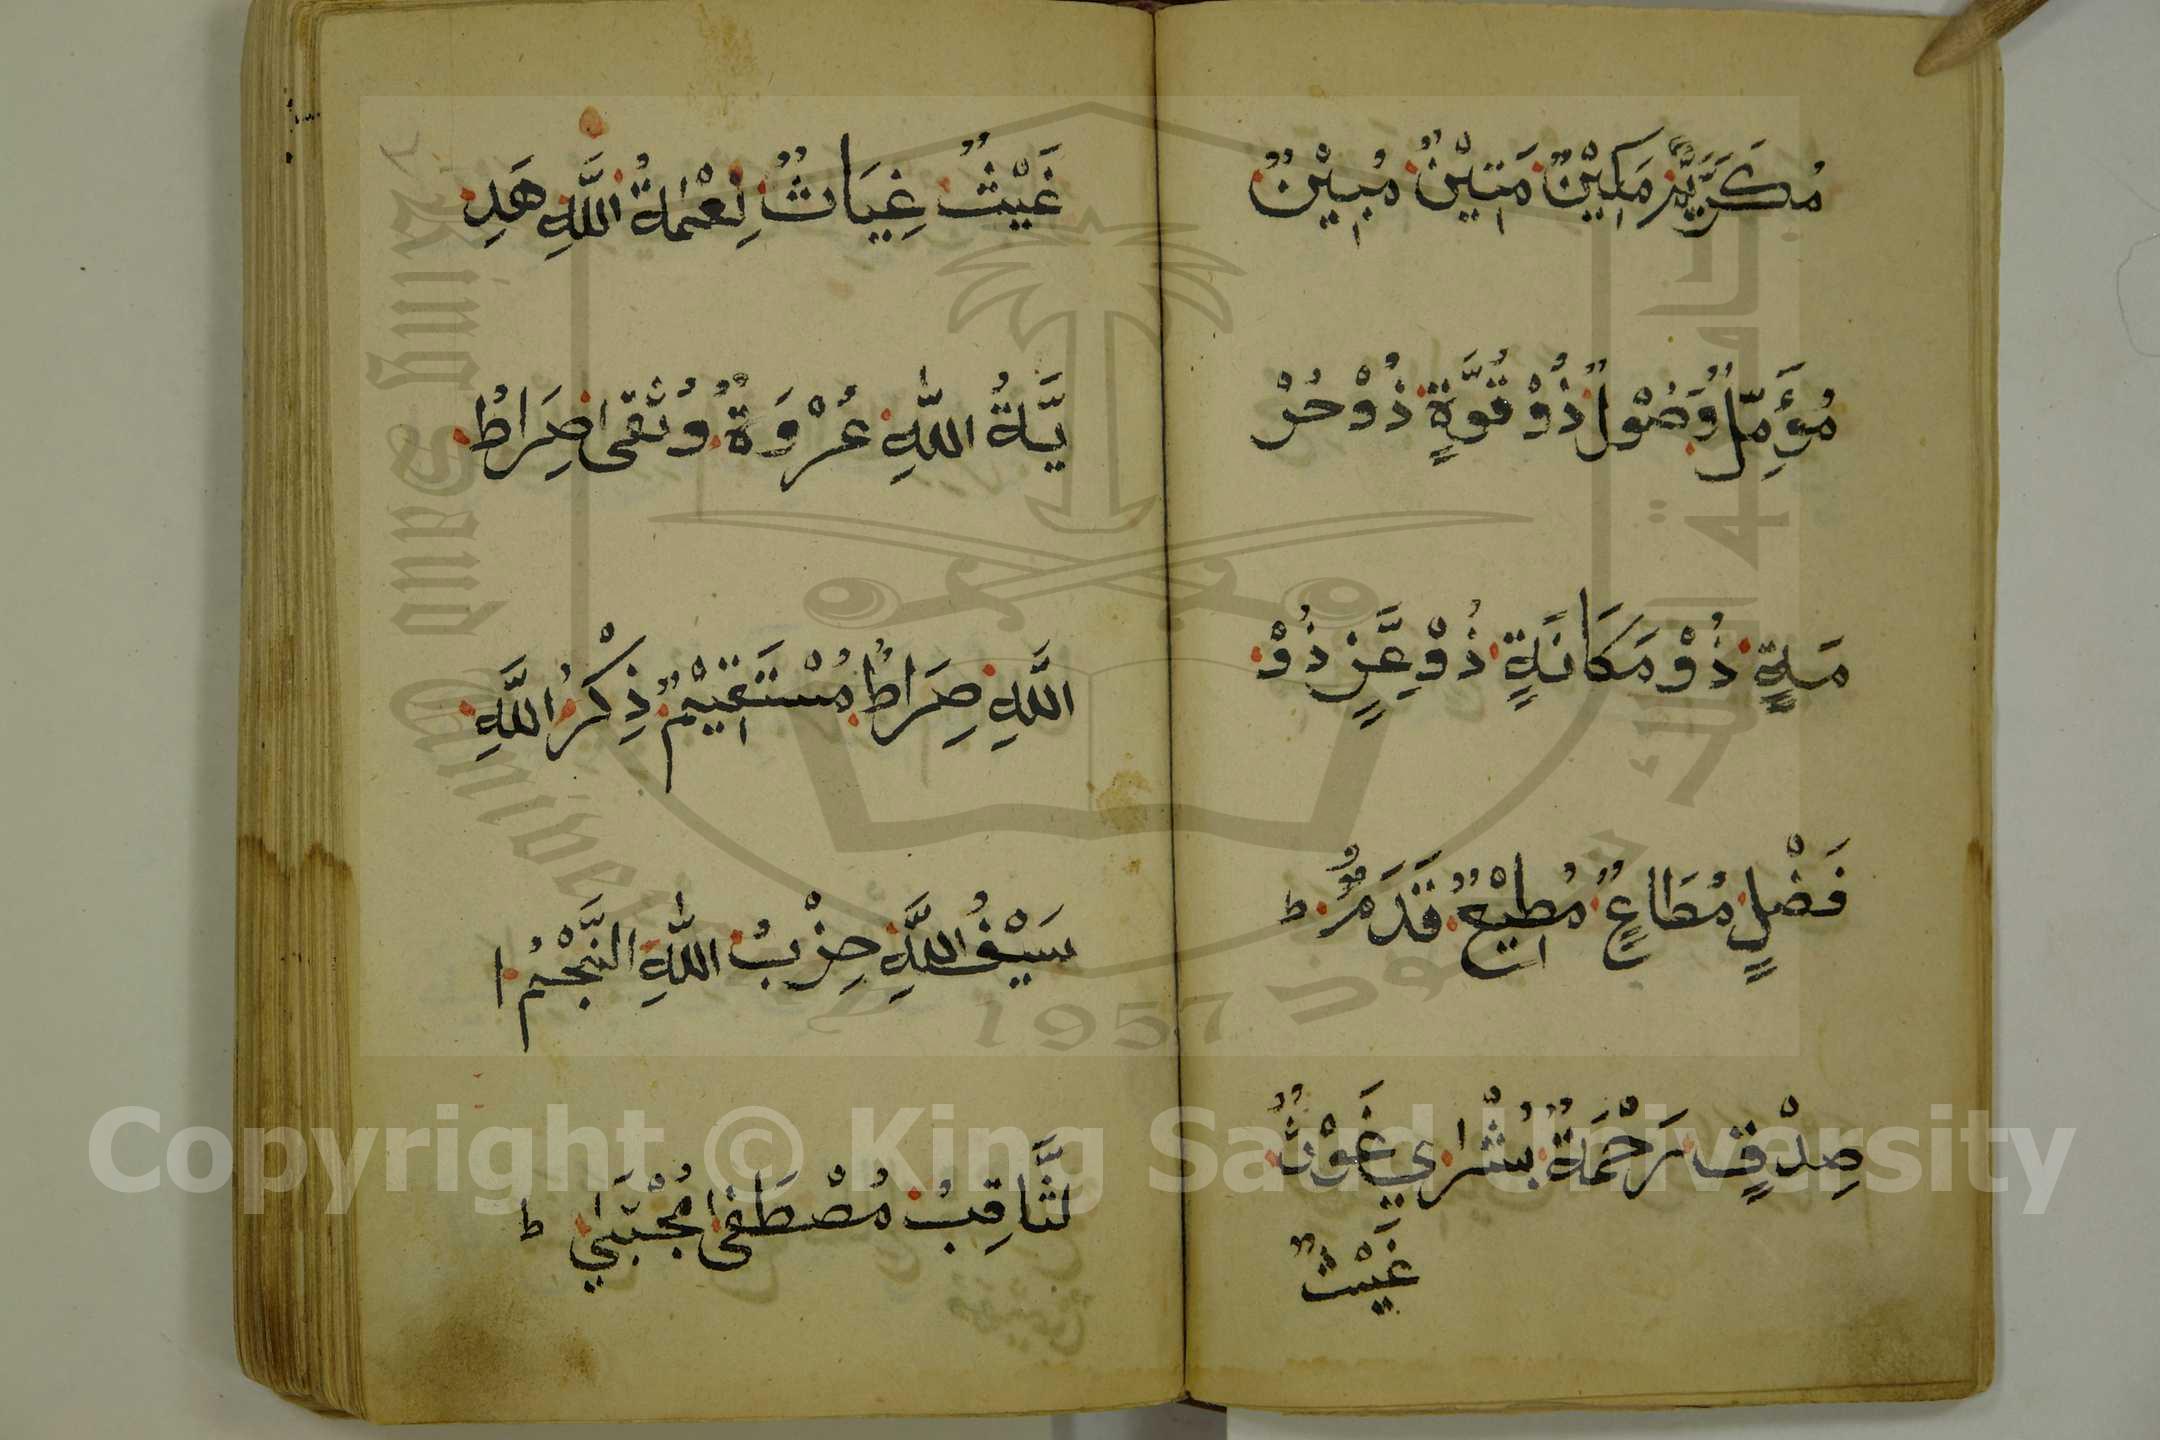 مُكَرَّمٌ مَكِيْنٌ مَتِيْنٌ مُبِيْنٌ
مُؤَمِّلٌ وَصُوْلٌ ذُوْ قُوَّةٍ ذُوْ حُرْ
مَةٍ ذُوْ مَكَانَةٍ ذُوْ عِزٍّ ذُوْ
فَضْلٍ مُطَاعٌ مُطِيْعٌ قَدَمُ ط
صِدْقٍ رَحْمَةٌ بُشْرٰي غَوْثٌ
غَيْثٌ
غَيْثٌ غِيَاثٌ نِعْمَةُ اللَّهِ هَدِ
يَّةُ اللَّهِ عُرْوَةٌ وُثْقى صِرَاطُ
اللَّهِ صِرَاطٌ مُسْتَقِيْمٌ ذِكْرُ اللَّهِ
سَيْفُ اللَّهِ حِزْبُ اللَّهِ النَّجْمُ ا
لثَّاقِبُ مُصْطَفى مُجْتَبٰي ط
Copyright © King Saud University
King Saud University
1957